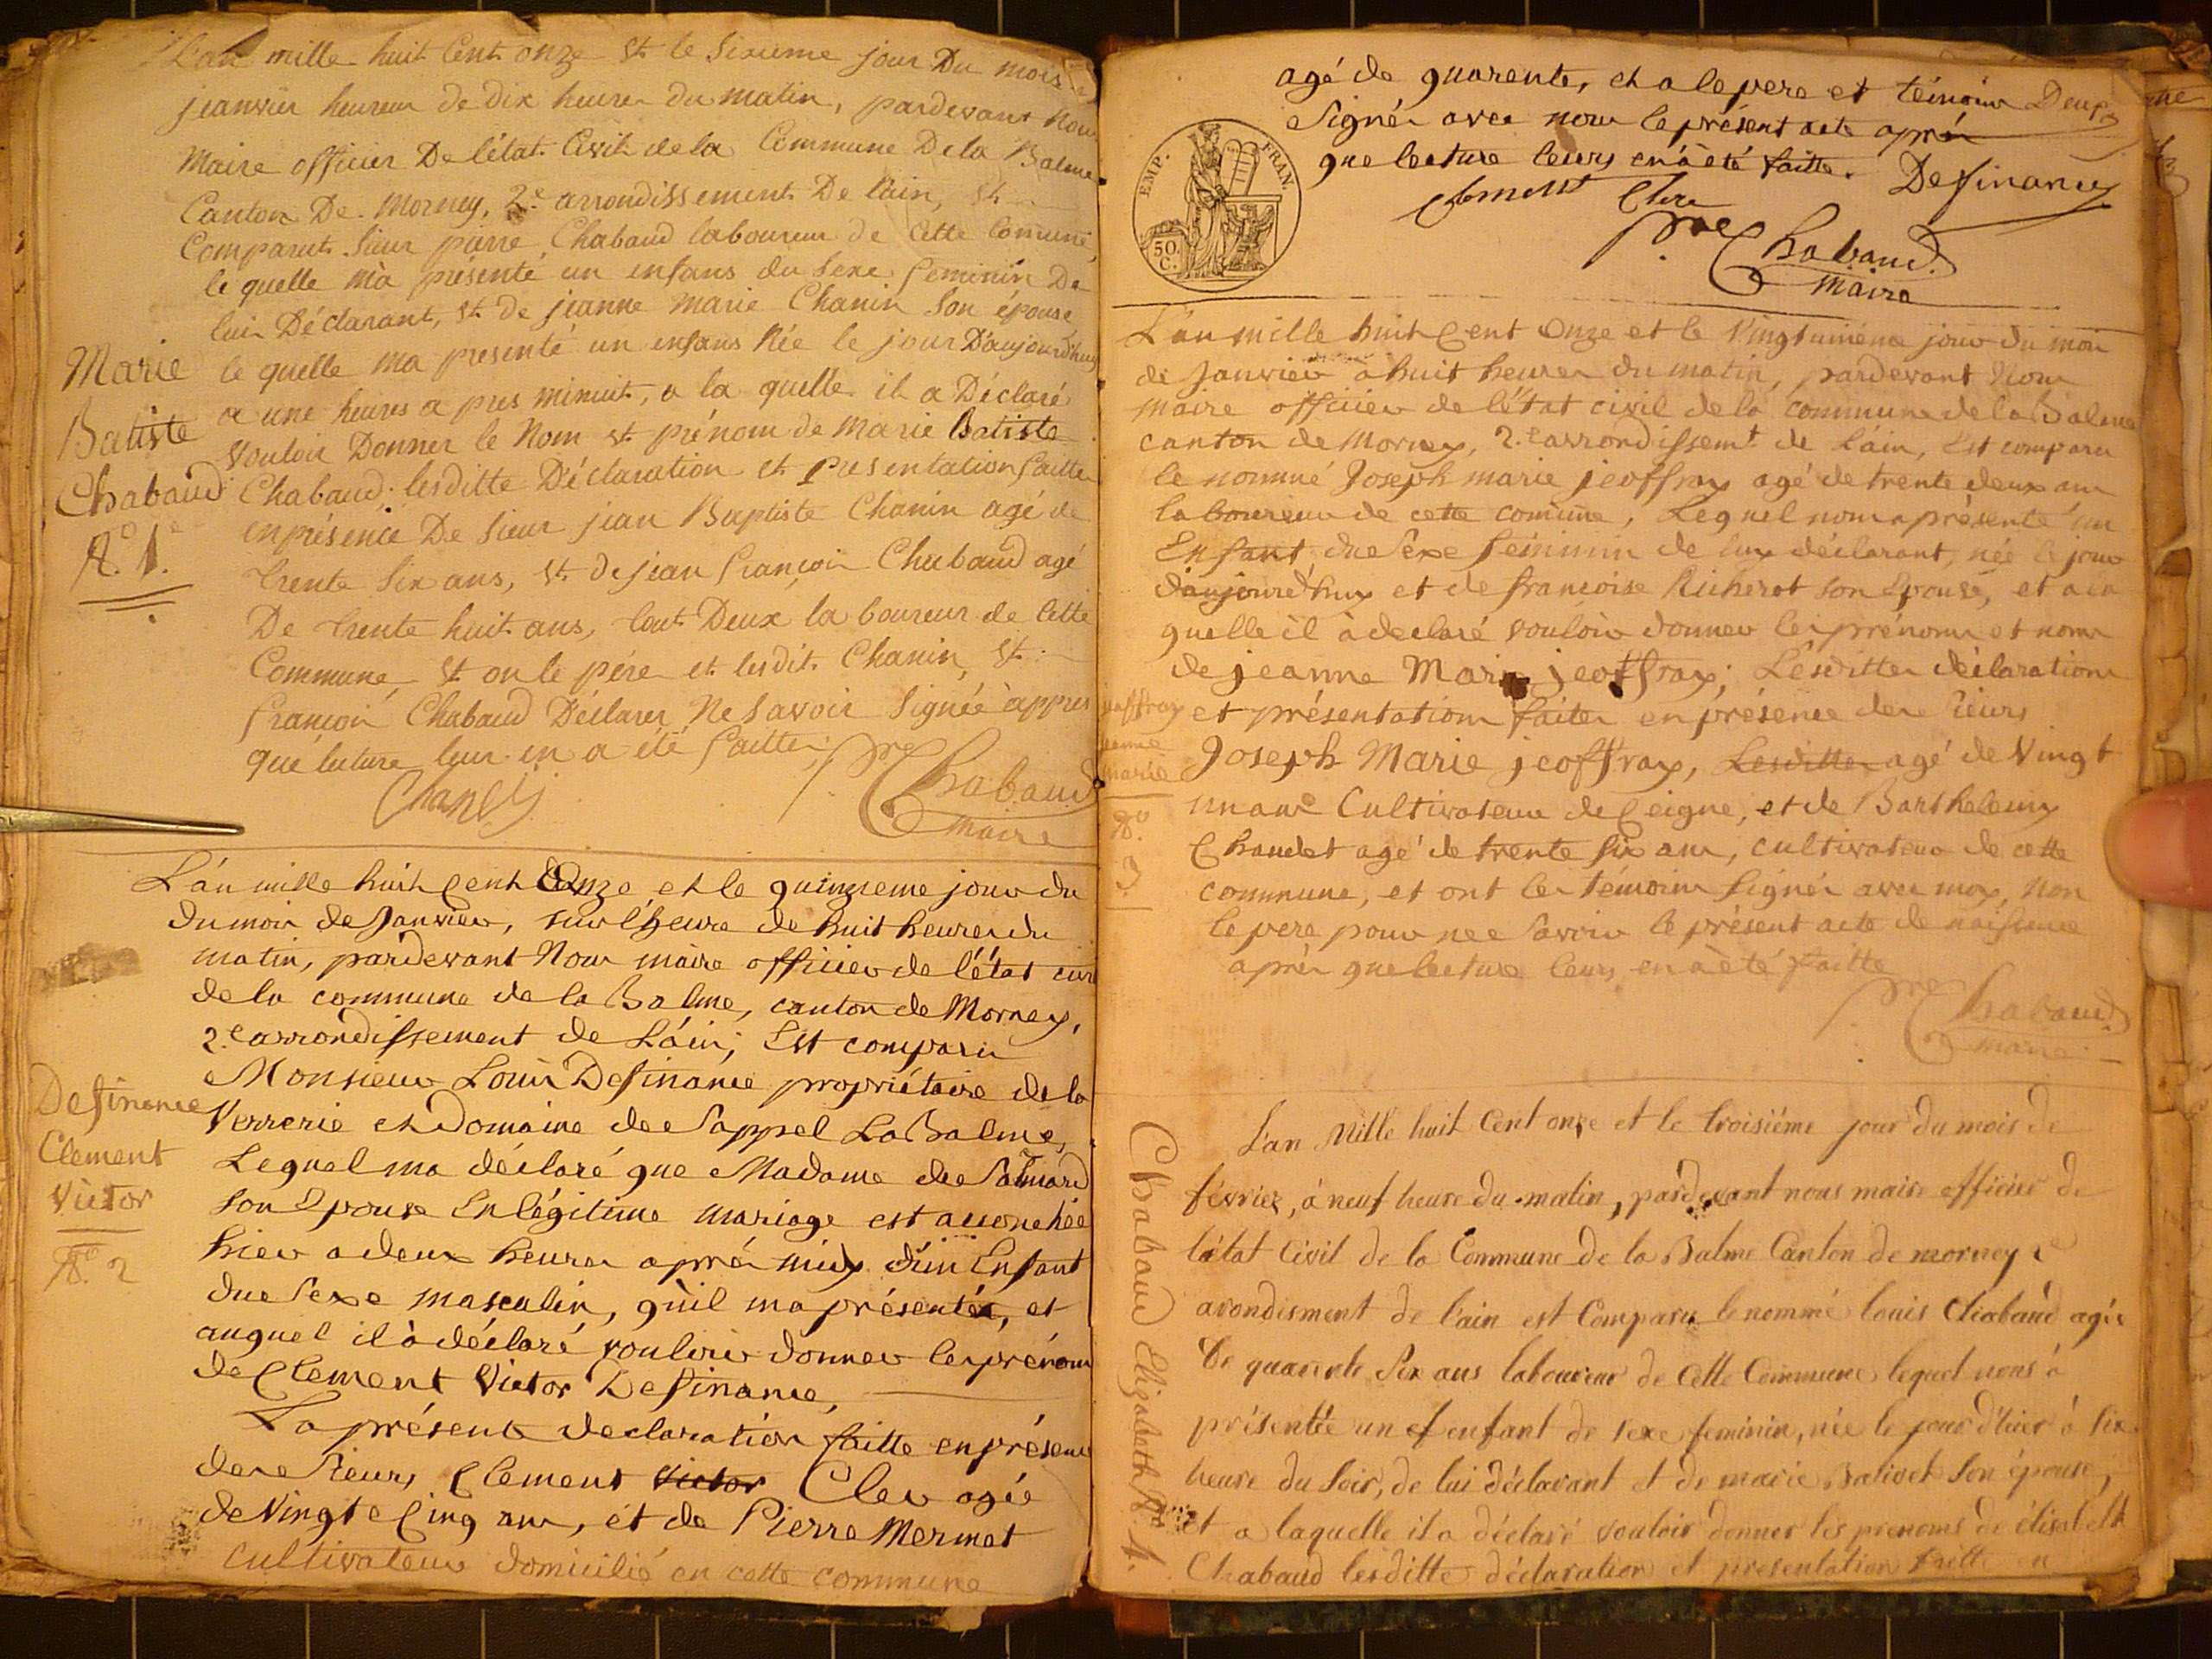 L'an mille huit Cent onze et le Sixieme jour Du mois
jeanvier heureu de dix heures du matin, pardevant Nous
Maire officier De l'état Civil de la Commune De la Balme
Canton De Morney, 2e arrondissement De l'ain, St
Comparut Sieur pierre Chabaud laboureur de Cette Comune
le quelle m'a présenté un enfans du Sexe feminin De
lui Déclarant, St de jeanne Marie Chanin Son épouse
le quelle ma presenté un enfans Née le jour D'aujourd'huy
a une heures a pres minuit, a la quelle il a Déclaré
Vouloir Donner le Nom et prénom de Marie Batiste
Chabaud; lesditte Déclaration et Presentation faitte
en présence De Sieur jean Baptiste Chanin agé de
trente Six ans, St de jean françois Chabaud agé
De trente huit ans, tout Deux laboureur de Cette
Commune, St on le père et lesdit Chanin, St
françois Chabaud Déclarer Ne Savoir Signée àppres
que lecture leur en a été faitte;
Pre Chabaud
Maire
Marie
Batiste
Chabaud
N.° 1.
L'an mille huit Cent Onze, et le quinzieme jour du
du mois de Janvier, sur l'heure de huit heures du
matin, pardevant Nous maire officier de l'état civil
de la commune de la Balme, canton de Mornay,
2.e arrondissement de L'áin; Est comparu
Monsieur Louis Definance propriétaire de la
Verrerie et Domaine de Sappel La Balme,
Lequel ma déclaré que Madame de
son Epouse En légitime mariage est accouchée
hier a deux heures après midy d'un Enfant
du Sexe masculin, qu'il ma présenté, et
auquel il à déclaré vouloir donner les prénoms
de Clement Victor Definance,
La présente declaration faitte en présence
des Sieurs Clement Victor Cler agée
de Vingt Cinq ans, et de Pierre Mermet
cultivateur domicilié en cette commune
Definance
Clement
Victor
N.° 2
agé de quarente, et a le pere et témoins Deux
Signés avec nous le présent acte après
que lecture leurs en à été faitte.
Definance
Clement Clere
Pre Chabaud
Maire
EMP. FRAN.
50 C.
L'an mille huit Cent Onze et le Vingtuniéme jour du mois
de Janvier à huit heures du matin, pardevant Nous
maire officier de l'état civil de la commune de la Balme
canton de Mornay, 2.e arrondissemt. de L'áin, Est comparu
le nommé Joseph marie jeoffray agé de trente deux ans
laboureur de cette comune, Lequel nous a présenté un
Enfant, du Sexe féminin de luy déclarant, née le jour
daujourd'huy et de francoise Richerot son Epouse, et a la
quelle il à declaré vouloir donner les prénoms et noms
de jeanne Marie jeoffray; Lesdittes déclarations
et présentations faites en présence des Sieurs
Joseph Marie jeoffray, Lesdittes agé de Vingt
un ans Cultivateur de Ceigne, et de Barthelemy
Chaudet agé de trente Six ans, cultivateur de cette
commune, et ont les témoins Signés avec moy, Non
le pere pour ne Savoir le présent acte de naissance
après que lecture leurs en à été faitte
Pre Chabaud
maire
jeoffray
jeanne
marie
N.°
3
L'an Mille huit Cent onze et le troisiéme jour du mois de
février, à neuf heure du matin, pardevant nous maire officier de
l'état Civil de la Commune de la Balme Canton de mornay 2e
arondisment de l'ain est Comparu le nommé louis Chabaud agée
De quarente Six ans laboureur de Cette Commune lequel nous à
présentée un ef enfant de sexe feminin, née le jour d'hier à Six
heure du Soir, de lui déclarant et de marie Bativet Son épouse,
et a laquelle il a déclaré vouloir donner les prenoms de élisabeth
Chabaud lesditte déclaration et presentation faitte en
Chabaud Elizabeth N° 4.